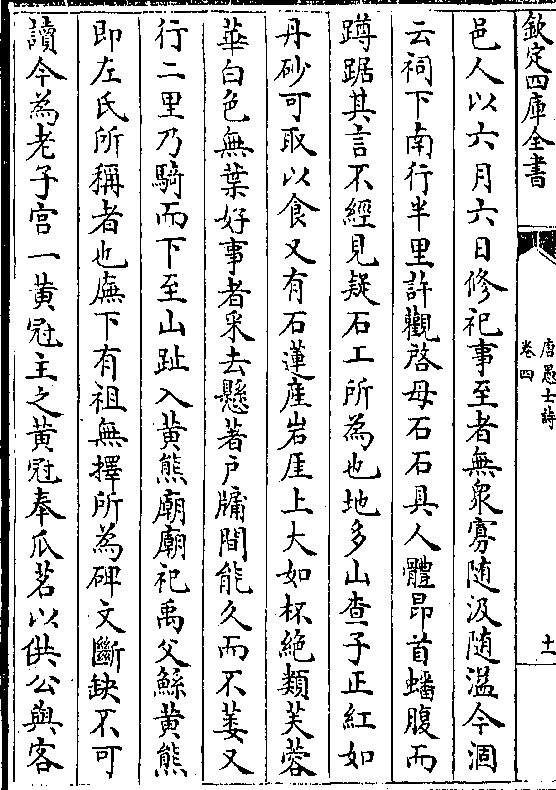 欽定四庫全書
唐愚士詩
卷四
十一
邑人以六月六日修祀事至者無衆寡随汲随溢今涸
云祠下南行半里許觀啓母石石具人體昂首蟠腹而
蹲踞其言不經見疑石工所為也地多山查子正紅如
丹砂可取以食又有石蓮産岩厓上大如杯絶類芙蓉
華白色無葉好事者采去懸著戸牖間能久而不萎又
行二里乃騎而下至山趾入黄熊廟廟祀禹父鯀黄熊
即左氏所稱者也廡下有祖無擇所為碑文斷缺不可
讀今為老子宫一黄冠主之黄冠奉瓜茗以供公與客